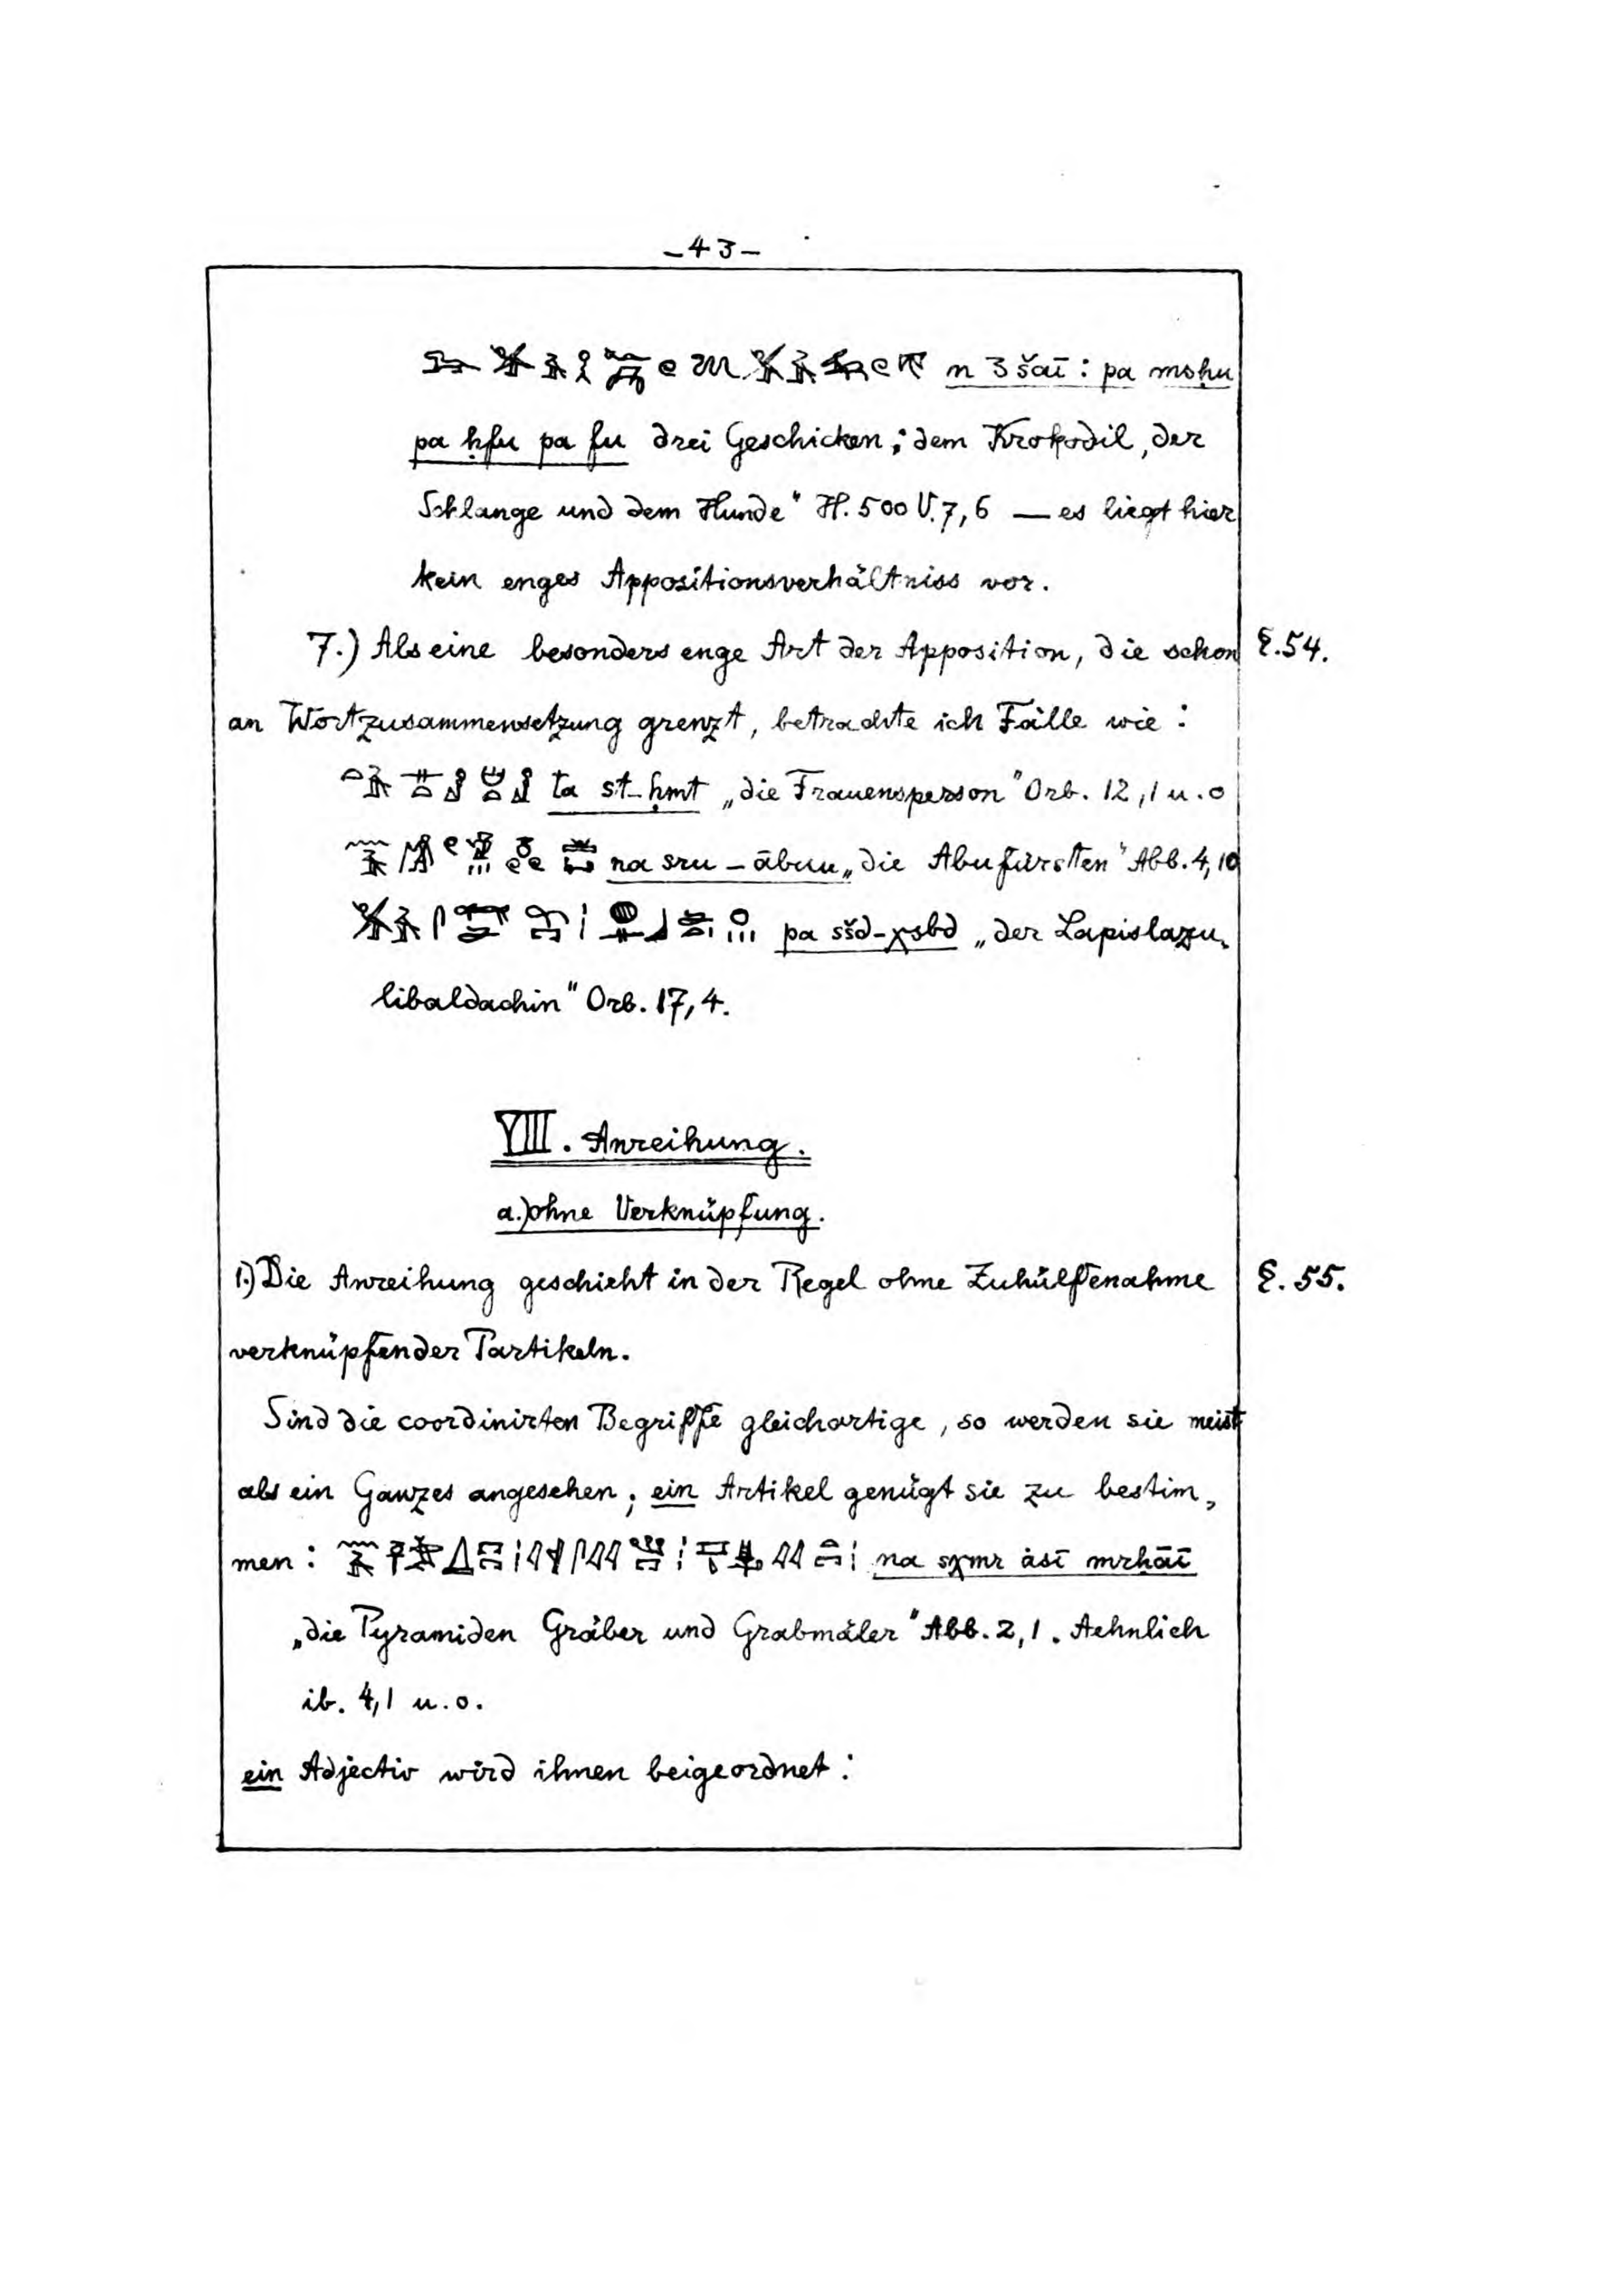 -43-
n 3 šaī : pa mshu
pa ḥfu pa fu drei Geschicken; dem Krokodil, der
Schlange und dem Hunde" H. 500 V. 7, 6 — es liegt hier
kein enges Appositionsverhältniss vor.
7.) Als eine besonders enge Art der Apposition, die schon §. 54.
an Wortzusammensetzung grenzt, betrachte ich Fälle wie :
ta st-ḥmt „die Frauensperson" Orb. 12, 1 u. o
na sru - ābuu „die Abufürsten" Abb. 4, 10
pa sšd-χsbd „der Lapislazu-
libaldachin" Orb. 17, 4.
VIII. Anreihung.
a.) ohne Verknüpfung.
1.) Die Anreihung geschieht in der Regel ohne Zuhülfenahme §. 55.
verknüpfender Partikeln.
Sind die coordinirten Begriffe gleichartige, so werden sie meist
als ein Ganzes angesehen; ein Artikel genügt sie zu bestim-
men : na sχmr ȧsī mrḥāī
„die Pyramiden Gräber und Grabmäler" Abb. 2, 1. Aehnlich
ib. 4, 1 u. o.
ein Adjectiv wird ihnen beigeordnet :